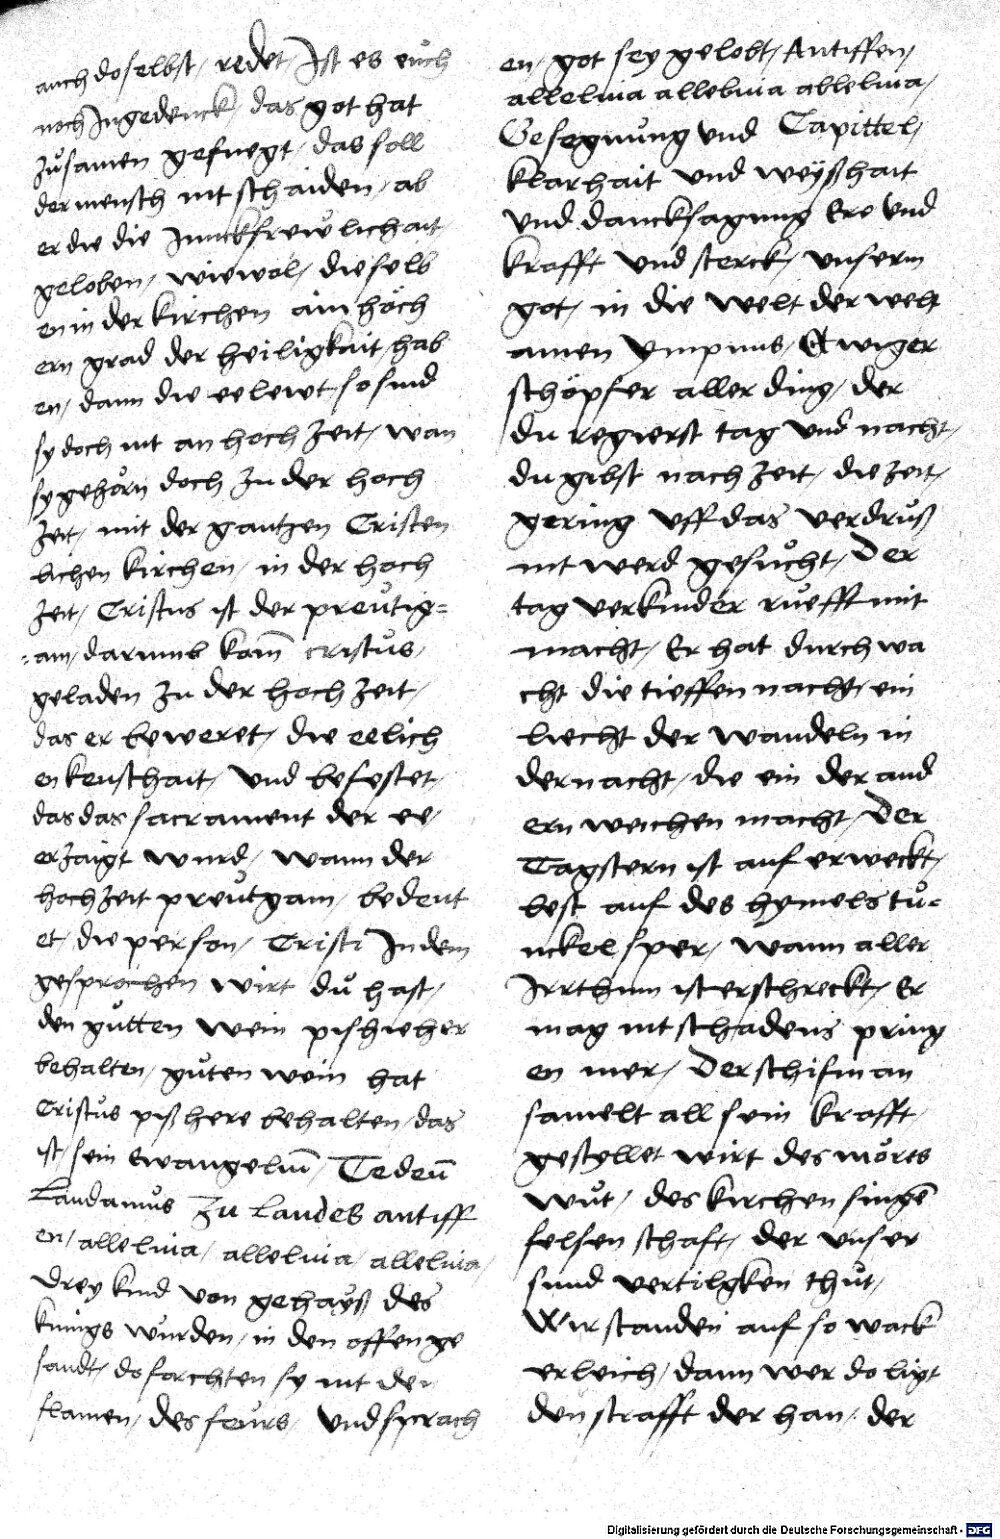 auch doselbst / redet / Ist es eůch
noch Ingedenck / das got hat
zůsamen gefuegt / das soll
der mensch nit schaiden / ab
er die die Junckfrewlichait /
geloben / wiewol / dieselb
en in der kirchen ain höch
ern grad der heiligkait / hab
en / dann die eelewt so sind
sy doch nit an hoch zeit / wan
sy gehörn doch zu der hoch
zeit / mit der gantzen Cristen
lichen kirchen / in der hoch
zeit / Cristus ist der preůtig=
=am / darumb kom̄ cristůs /
geladen zu der hoch zeit /
das er beweret / die eelich
en keuschait / vnd befestet /
das das sacrament der ee /
erzaigt wurd / wann der
hochzeit preůtgam / bedeut
et / die person / Cristi In dem
gesprochen wirt dů hast /
den gůtten wein pishieher
behalten / gůten wein hat
Cristůs piß here behalten / das
ist / sein ewangeliū / Tedeū
Laudamůs Zu Laudes antiff
en / alleluia / alleluia / alleluia /
Drey kind von gehayß des
kunigs wurden / in den offen ge
sandt / do forchten sy nit der
flamen / des feůrs / vnd sprach
en / got sey gelobt / Antiffen /
alleluia alleluia alleluia /
Gesegnůng vnd Capittel /
klarhait vnd weÿßhait
vnd dancksagung Ere vnd
krafft vnd sterck / vnserm
got / in die welt der welt
amen Ympnus / Ewiger
schöpfer aller ding / der
du regierst tag vnd nacht /
du gibst nach zeit / die zeit /
gering vff das verdrůß
nit werd gesůcht / Der
tag verkinder ruefft mit
macht / Er hat durch wa
cht die tieffen nacht / ein
liecht der wandeln in
der nacht / die ein der and
ern weichen macht / Der
Tagstern ist auf erweckt /
lest auf des hymels tů=
nckel sper / wann aller
Irrthum ist erschreckt / Er
mag nit schadens pring
en mer / Der schifman
samelt all sein krafft /
gestyllet wirt des mörs
wůt / des kirchen singē
felsen schaft / der vnser
sund vertilgken thůt /
Wir standen auf so wack
erleich / dann wer do ligt
den strafft der han / der
Digitalisierung gefördert durch die Deutsche Forschungsgemeinschaft - DFG